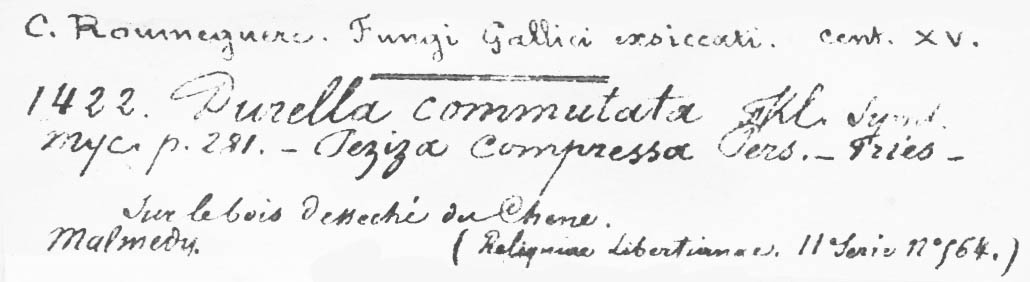 C. Roumeguere. Fungi Gallici exsiccati. cent. XV.
1422. Durella commutata Fkl. Symb.
myc. p. 281. - Peziza Compressa Pers. - Fries -
Sur le bois desseché du Chene.
Malmedy. (Reliquiae Libertianae. II e Serie No 564.)